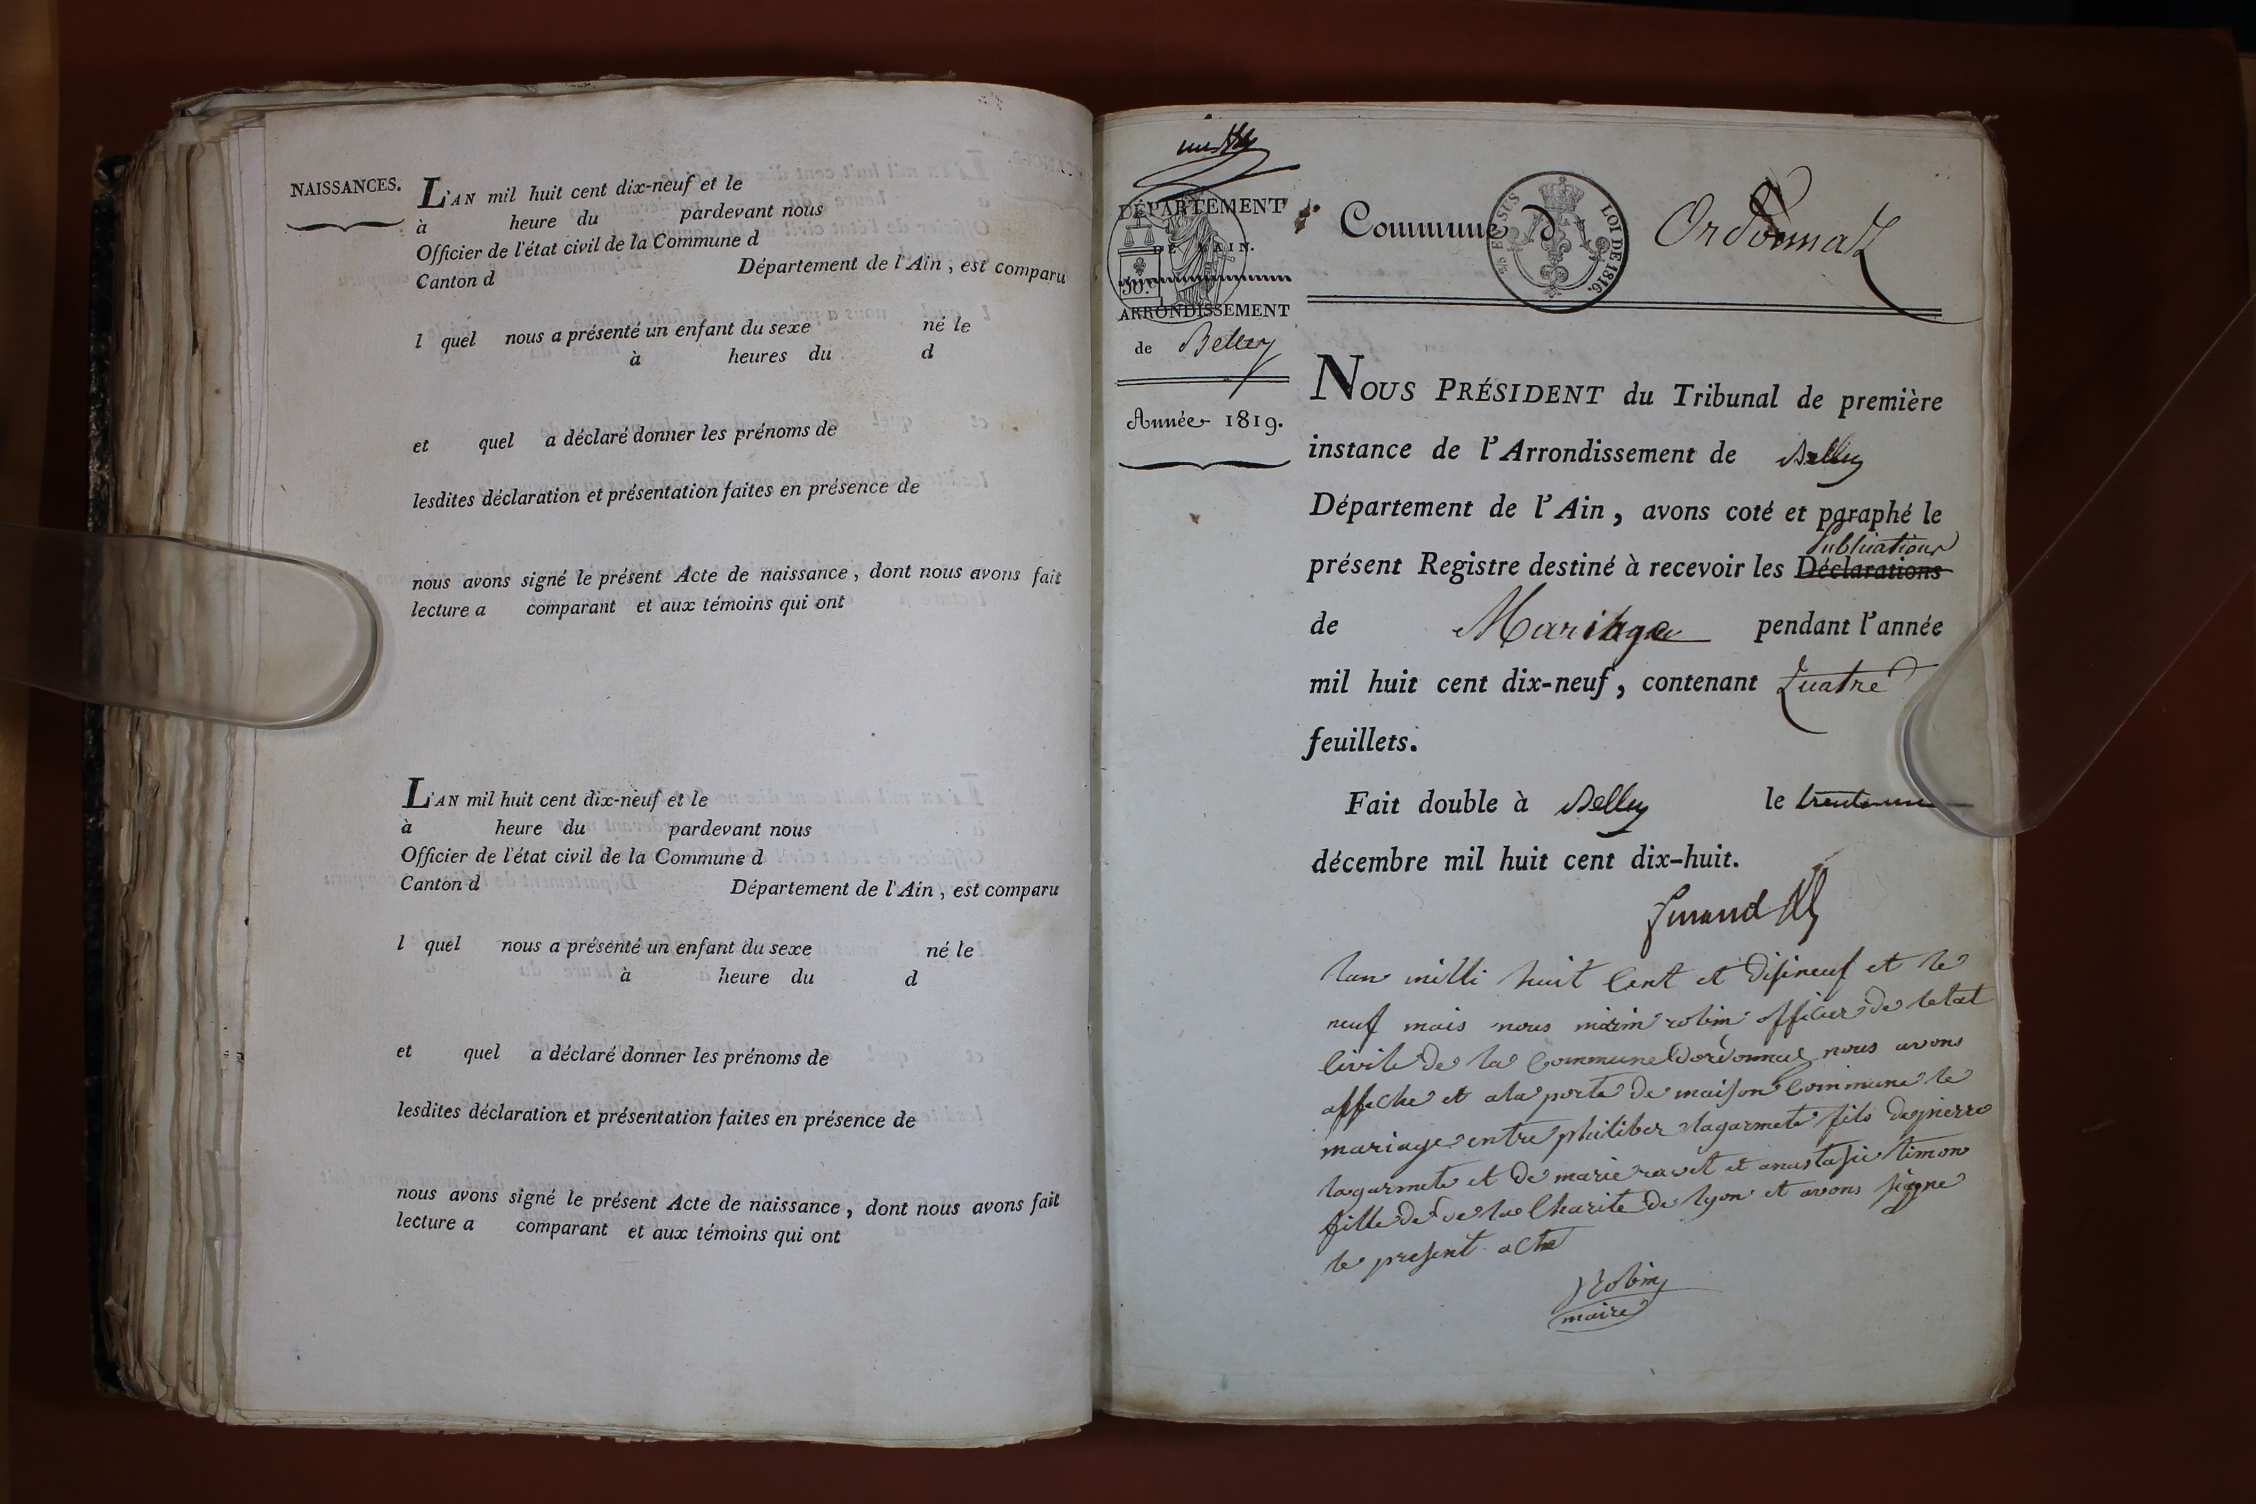 NAISSANCES.
L'AN mil huit cent dix-neuf et le
à heure du pardevant nous
Officier de l'état civil de la Commune d
Canton d Département de l'Ain, est comparu
l quel nous a présenté un enfant du sexe né le
à heures du d
et quel a déclaré donner les prénoms de
lesdites déclaration et présentation faites en présence de
nous avons signé le présent Acte de naissance, dont nous avons fait
lecture a comparant et aux témoins qui ont
L'AN mil huit cent dix-neuf et le
à heure du pardevant nous
Officier de l'état civil de la Commune d
Canton d Département de l'Ain, est comparu
l quel nous a présenté un enfant du sexe né le
à heure du d
et quel a déclaré donner les prénoms de
lesdites déclaration et présentation faites en présence de
nous avons signé le présent Acte de naissance, dont nous avons fait
lecture a comparant et aux témoins qui ont
DÉPARTEMENT
DE L'AIN.
50.c
ARRONDISSEMENT
de Belley
Année 1819.
Commune d' Ordonnaz
LOI DE 1816.
NOUS PRÉSIDENT du Tribunal de première
instance de l'Arrondissement de Belley
Département de l'Ain, avons coté et paraphé le
Publications
présent Registre destiné à recevoir les Déclarations
de Mariage pendant l'année
mil huit cent dix-neuf, contenant quatre
feuillets.
Fait double à Belley le trente un
décembre mil huit cent dix-huit.
lan milli huit cent et disineuf et le
neuf mais nous robin officier de letat
civile de la commune dordonnaz nous avons
affiche et ala porte de maison commune le
mariage entre philiber lagarmete fils de pierre
lagarmete et de marie ravet et anastasie timon
fille de de la charite de lyon et avons signe
le present acte
Robin
maire